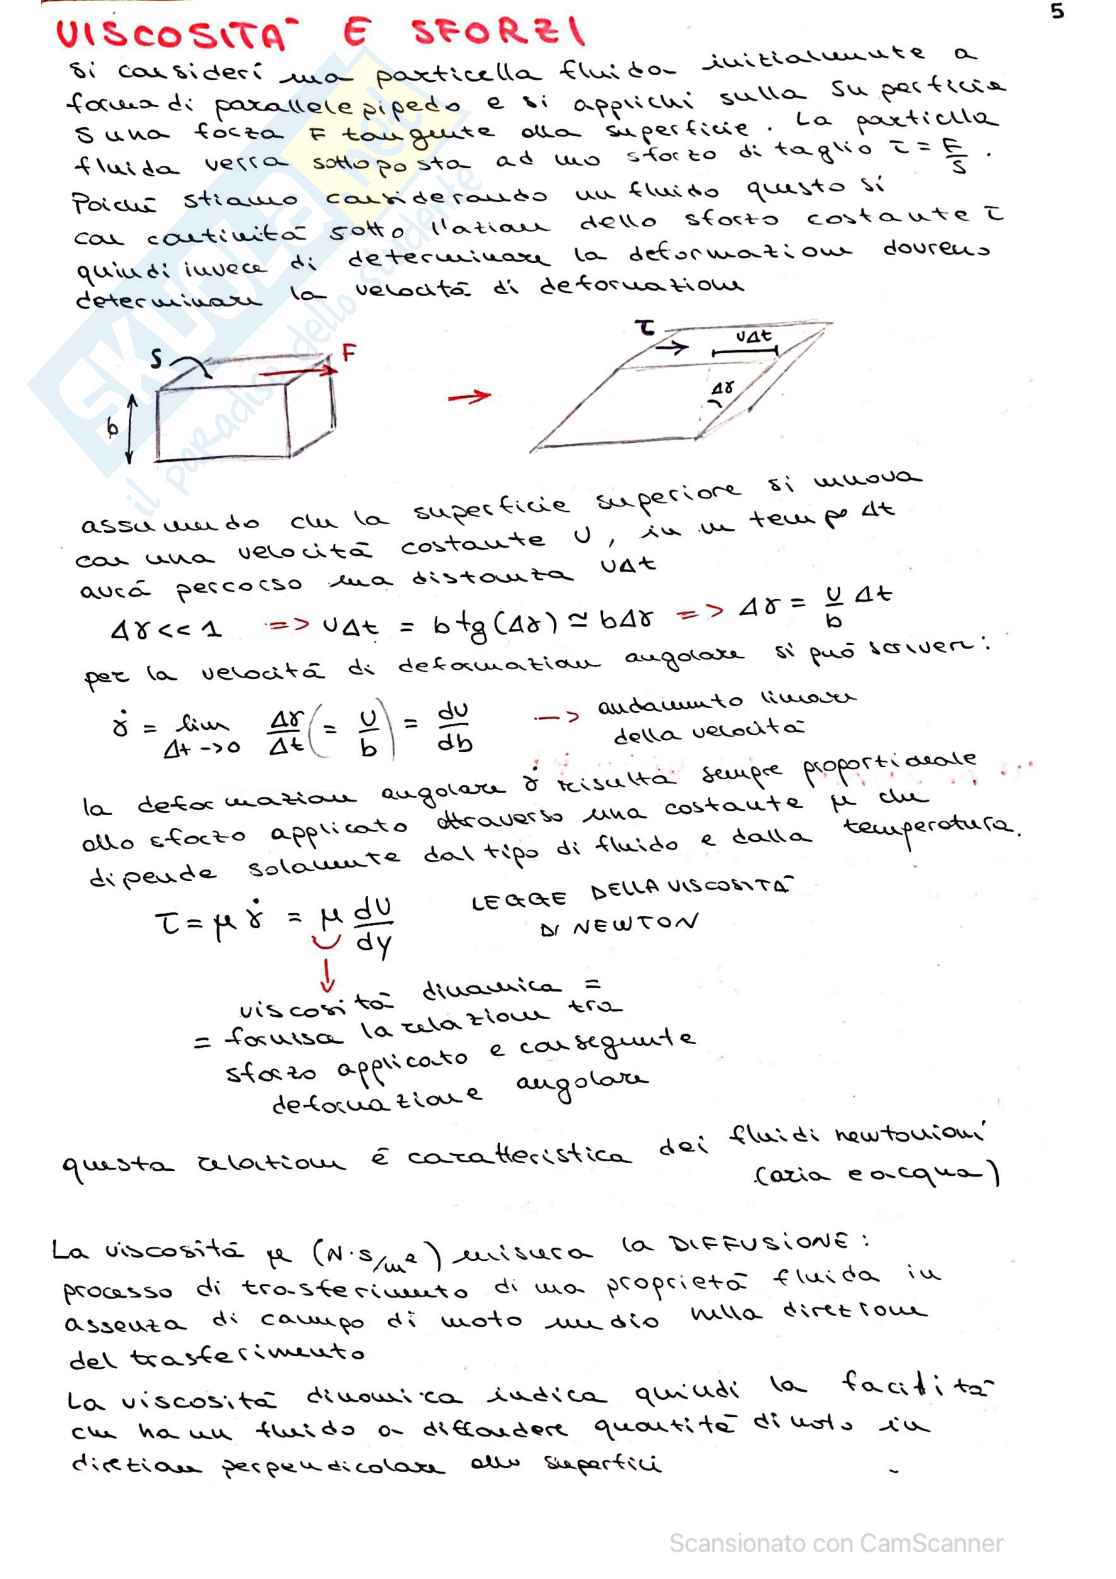 5
VISCOSITÀ E SFORZI
Si consideri una particella fluida inizialmente a
forma di parallelepipedo e si applichi sulla superficie
S una forza F tangente alla superficie. La particella
fluida verrà sottoposta ad uno sforzo di taglio τ = F/S.
Poiché stiamo considerando un fluido questo si
con continuità sotto l'azione dello sforzo costante τ
quindi invece di determinare la deformazione dovremo
determinare la velocità di deformazione
S F τ UΔt
b Δγ
assumendo che la superficie superiore si muova
con una velocità costante U, in un tempo Δt
avrà percorso una distanza UΔt
Δγ<<1 => UΔt = b tg(Δγ) ≃ bΔγ => Δγ = U/b Δt
per la velocità di deformazione angolare si può scrivere:
γ̇ = lim Δt->0 Δγ/Δt (= U/b) = dU/db -> andamento lineare
della velocità
la deformazione angolare γ̇ risulta sempre proporzionale
allo sforzo applicato attraverso una costante μ che
dipende solamente dal tipo di fluido e dalla temperatura.
τ = μ γ̇ = μ dU/dy LEGGE DELLA VISCOSITÀ
DI NEWTON
viscosità dinamica =
= fornisce la relazione tra
sforzo applicato e conseguente
deformazione angolare
questa relazione è caratteristica dei fluidi newtoniani
(aria e acqua)
La viscosità μ (N·s/m²) misura la DIFFUSIONE:
processo di trasferimento di una proprietà fluida in
assenza di campo di moto medio nella direzione
del trasferimento
La viscosità dinamica indica quindi la facilità
che ha un fluido a diffondere quantità di moto in
direzione perpendicolare alle superfici
SKUOLA.net
il paradiso dello studente
Scansionato con CamScanner